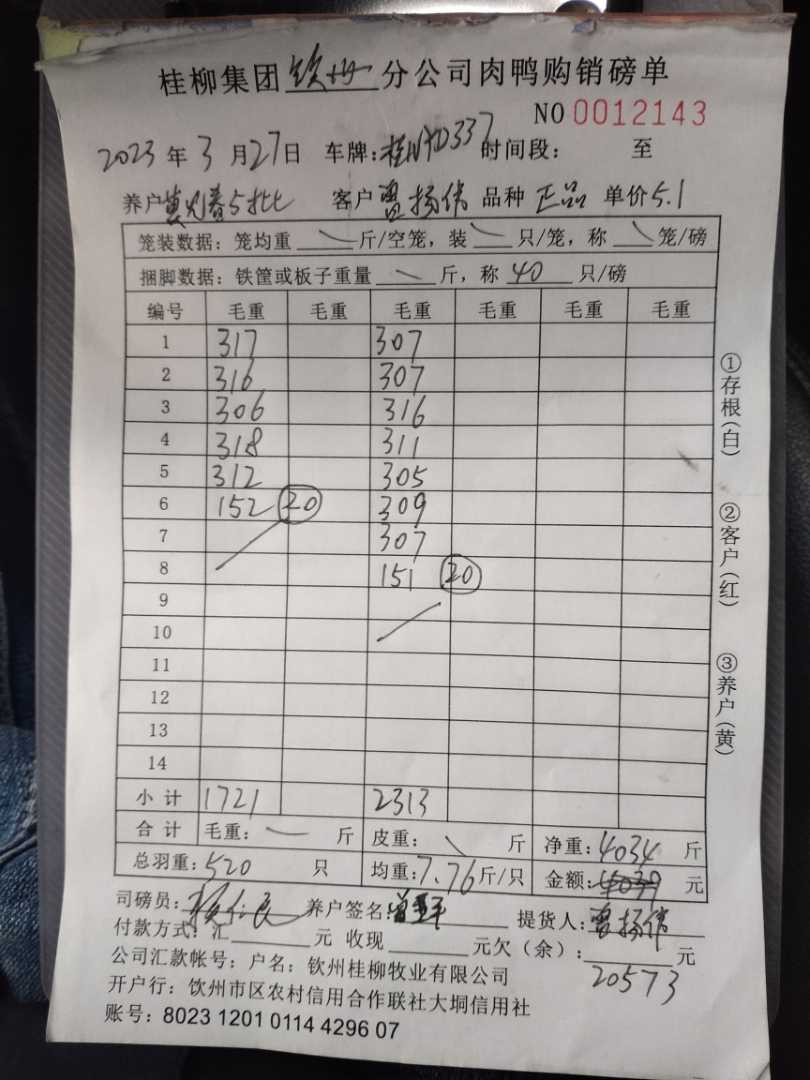 桂柳集团 钦州 分公司肉鸭购销磅单
NO 0012143
2023年3月27日 车牌:桂 D337 时间段: 至
养户 5批 客户 曹扬伟 品种 正品 单价 5.1
笼装数据:笼均重 \ 斤/空笼,装 \ 只/笼,称 \ 笼/磅
捆脚数据:铁筐或板子重量 \ 斤,称 40 只/磅
编号 毛重 毛重 毛重 毛重 毛重 毛重
1 317 307
2 316 307
3 306 316
4 318 311
5 312 305
6 152 20 309
7 307
8 151 20
9
10
11
12
13
14
小计 1721 2313
合计 毛重: \ 斤 皮重: \ 斤 净重: 4034 斤
总羽重: 520 只 均重: 7.76 斤/只 金额: 元
司磅员: 养户签名: 提货人: 曹扬伟
付款方式:汇 元 收现 元欠(余): 元
20573
公司汇款帐号:户名:钦州桂柳牧业有限公司
开户行:钦州市区农村信用合作联社大垌信用社
账号:8023 1201 0114 4296 07
①存根(白)
②客户(红)
③养户(黄)